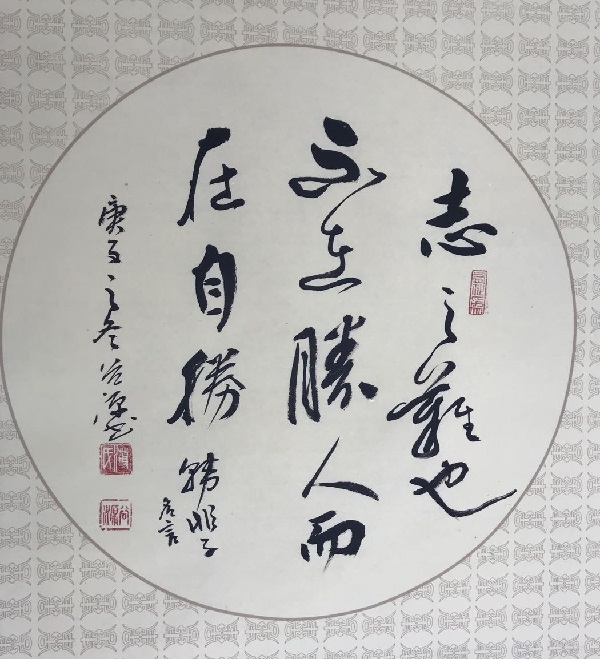 志之難也
不在勝人而
在自勝 韓非子
名言
庚午之冬